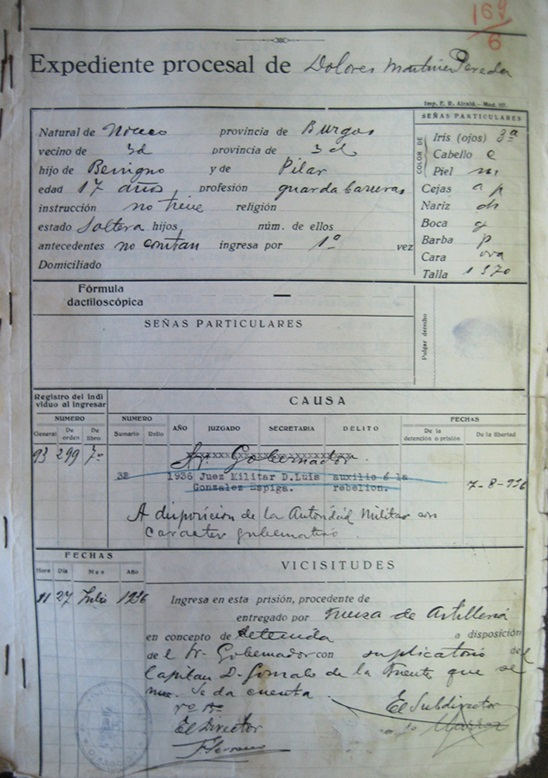 169
6
Expediente procesal de Dolores Martinez Pereda
Imp. E. R. Alcalá.- Mod. 107.
SEÑAS PARTICULARES
Natural de provincia de Burgos
vecino de id provincia de id
hijo de Benigno y de Pilar
edad 17 años profesión guarda barreras
instrucción no tiene religión
estado Soltera hijos núm. de ellos
antecedentes no constan ingresa por 1º vez
Domiciliado
COLOR DE
Iris (ojos) 3ª
Cabello c
Piel m
Cejas a p
Nariz
Boca g
Barba p
Cara ova
Talla 1570
Fórmula
dactiloscópica —
SEÑAS PARTICULARES
Pulgar derecho
Registro del indi
viduo al ingresar
CAUSA
NUMERO
General De orden De libro
NUMERO
Sumario Rollo
AÑO JUZGADO SECRETARIA DELITO
FECHAS
De la detención o prisión De la libertad
93 299 7º
Sr. Gobernador
32 1936 Juez Militar D. Luis auxilio á la
Gonzalez Espiga. rebelion.
7-8-936
A disposicion de la Autoridad Militar con
caracter gubernativo
FECHAS
Hora Día Mes Año
VICISITUDES
11 27 Julio 1936
Ingresa en esta prisión, procedente de
entregado por fuerza de Artillería
en concepto de detenida a disposición
de l Sr. Gobernador con suplicatorio del
Capitan D. Gonzalo de la Fuente que se
une. Se da cuenta.
Vº Bº
El Director
El Subdirector